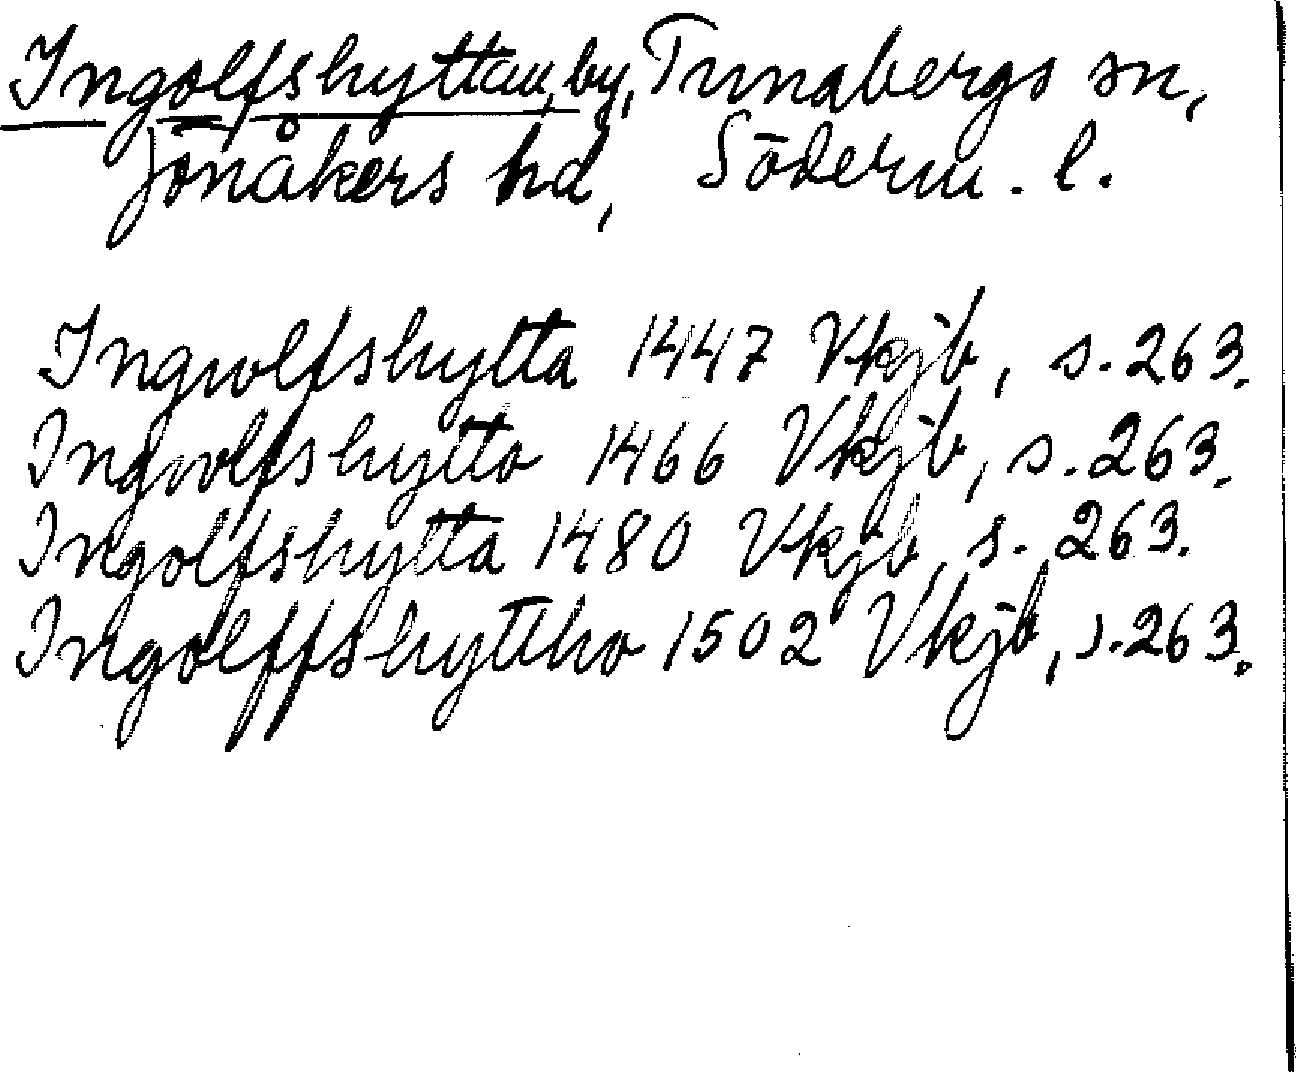 Ingolfshyttan, by, Tunabergs sn,
Jönåkers hd, Söderm. l.
Ingwolfshytta 1447 Vkjb, s. 263.
Ingwolfshytto 1466 Vkjb, s. 263.
Ingolfshytta 1480 Vkjb, s. 263.
Ingolffshyttho 1502 Vkjb, s. 263.